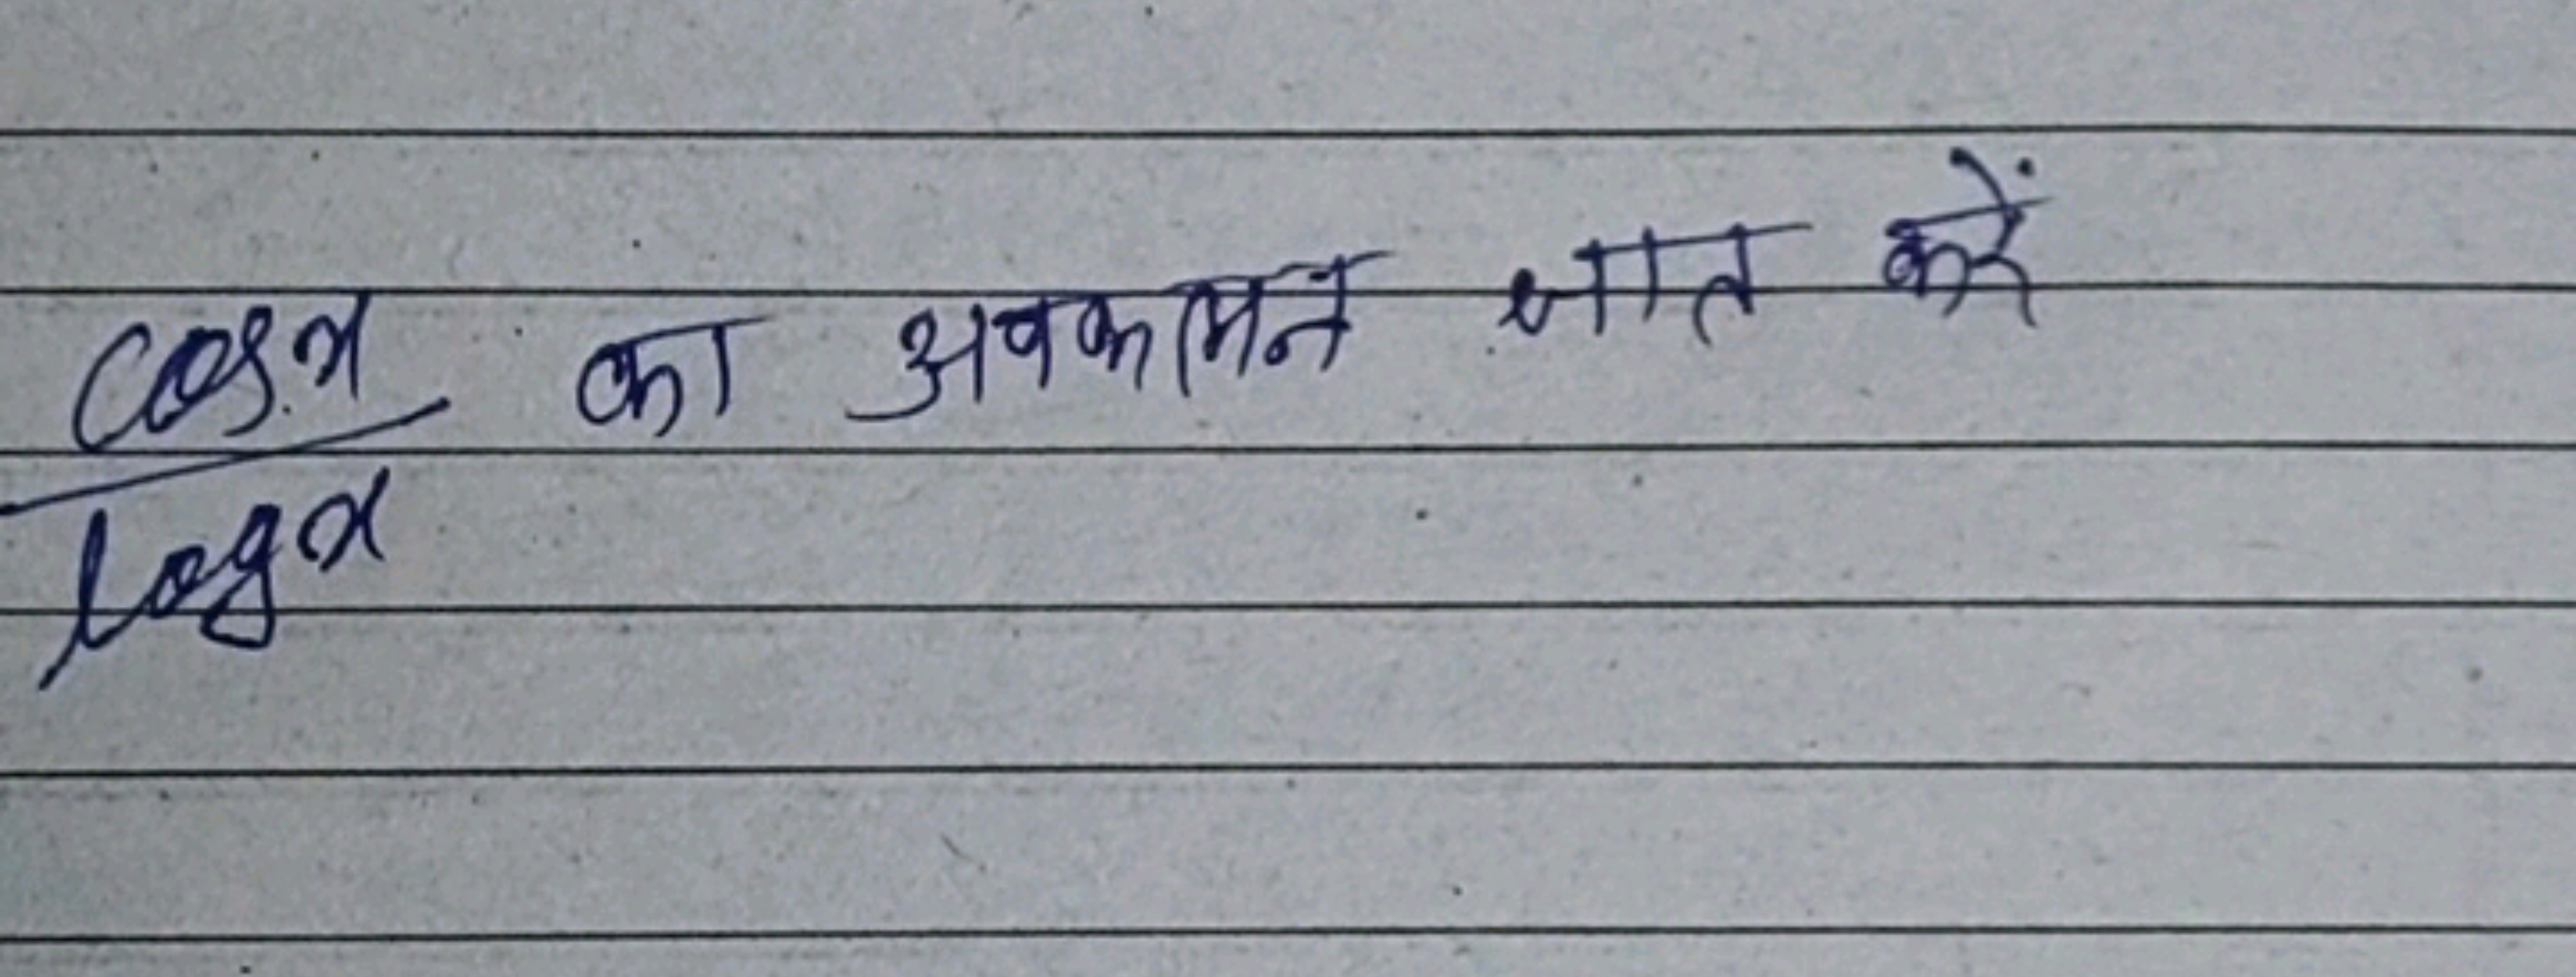 cos x का अवकलन ज्ञात करें
log x